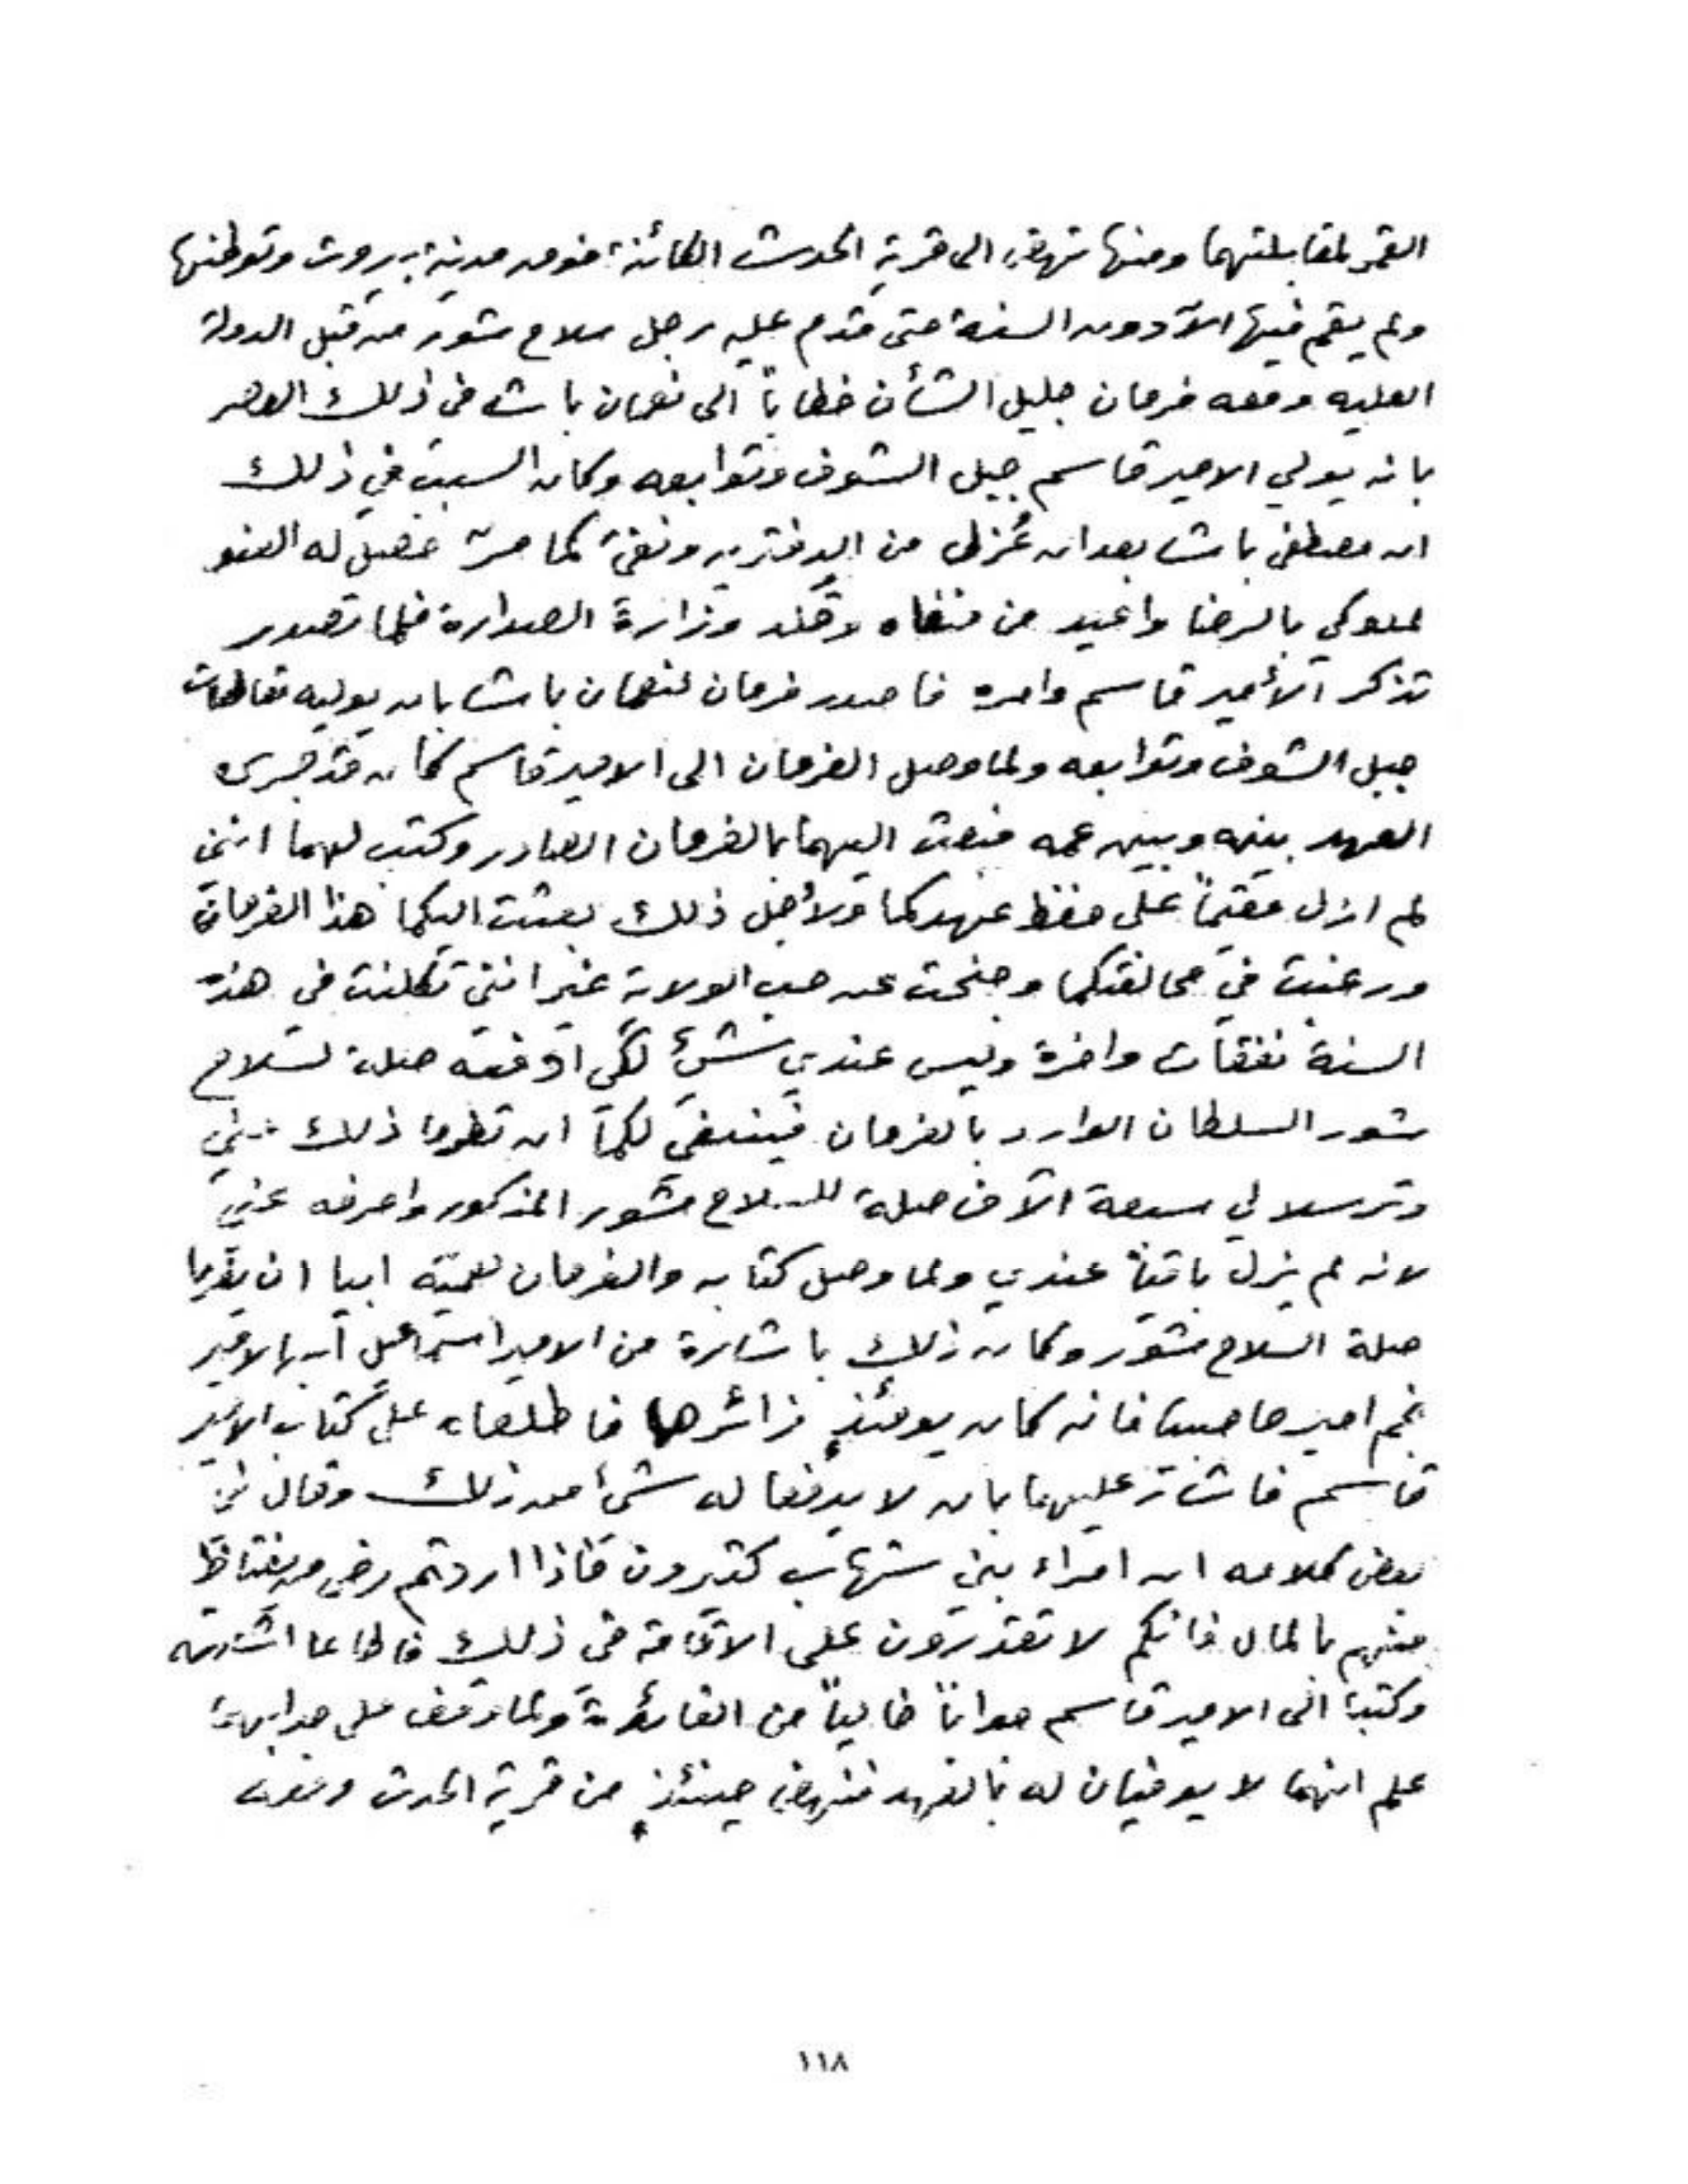 القمر لمقابلتهما ومنها نهض الى قرية الحدث الكائنة فوق مدينة بيروت وتوطنها
ولم يقم فيها الّا دون السنة حتى قدم عليه رجل سلاح شور من قبل الدولة
العليه ومعه فرمان جليل الشأن خطاباً الى نعمان باشا في ذلك العصر
بانه يولي الامير قاسم جبل الشوف وتوابعه وكان السبب في ذلك
ان مصطفى باشا بعد ان عُزل من الدفتريه ونفي كما مرّ فحصل له العفو
الملوكي بالرضا واعيد من منفاه وقُلد وزارة الصدارة فلما تصدر
تذكر الأمير قاسم وامره فاصدر فرمان لنعمان باشا بان يوليه مقاطعات
جبل الشوف وتوابعه ولما وصل الفرمان الى الامير قاسم كان قد جرى
العهد بينه وبين عمه فبعث اليهما بالفرمان الصادر وكتب لهما انني
لم ازل مقيماً على حفظ عهدكما ولأجل ذلك بعثت اليكما هذا الفرمان
ورغبت في محالفتكما وجنحت عن حب الولاية غير انني تكلفت في هذه
السنة نفقات وافرة وليس عندي شئ لكي ادفعه صلة لسلاح
شور السلطان الوارد بالفرمان فينبغي لكما ان ذلك عني
وترسلا لي سبعة الآف صلة للسلاح شور المذكور واصرفه عني
لانه لم يزل باقياً عندي ولما وصل كتابه والفرمان لعميه ابيا ان يؤديا
صلة السلاح شور وكان ذلك باشارة من الامير اسماعيل ابن الامير
نجم امير حاصبيا فانه كان يومئذٍ زائرهما فاطلعاه على كتاب الامير
قاسم فاشار عليهما بان لا يدفعا له شئاً من ذلك وقال في
بعض كلامه ان امراء بني شهاب كثيرون فاذا اردتم رضى من يغتاظ
منهم بالمال فانكم لا تقدرون على الاقامة في ذلك فاطاعا اشارته
وكتبا الى الامير قاسم جواباً خالياً من الفائدة ولما وقف على جوابهما
علم انهما لا يوفيان له بالعهد فنهض حينئذٍ من قرية الحدث
١١٨